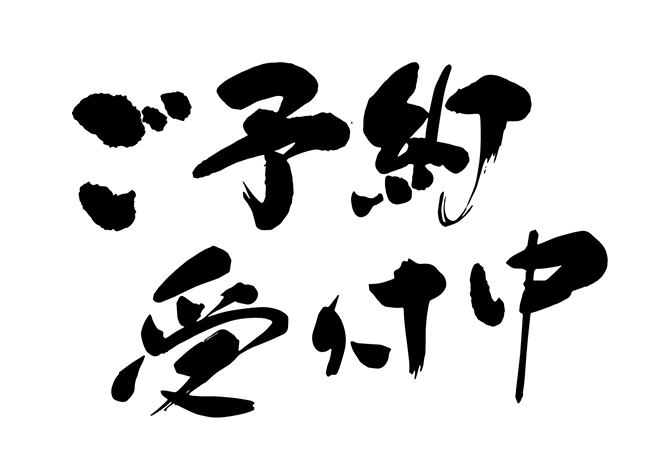 ご予約
受付中